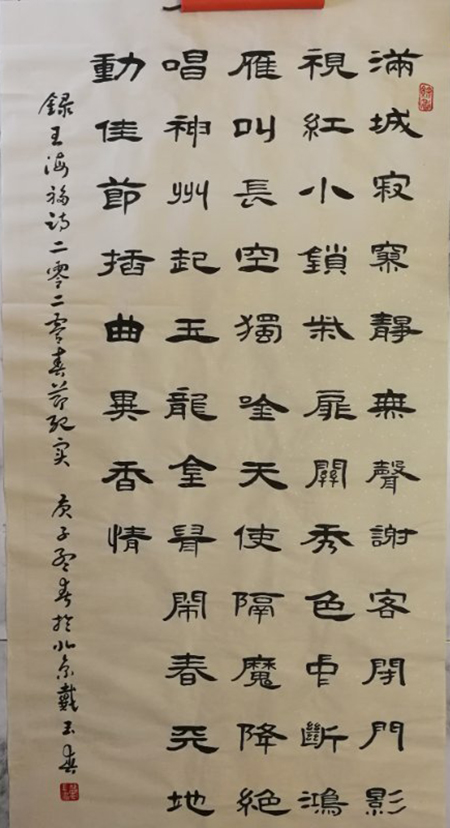 滿城寂寞靜無聲謝客閉門影
視紅小鎖柴扉關秀色中斷鴻
雁叫長空獨唫天使隔魔降絕
唱神州起玉龍金鼠鬧春天地
動佳節插曲異香情
録王海福诗二零二零春节纪实 庚子孟春於北京戴玉春